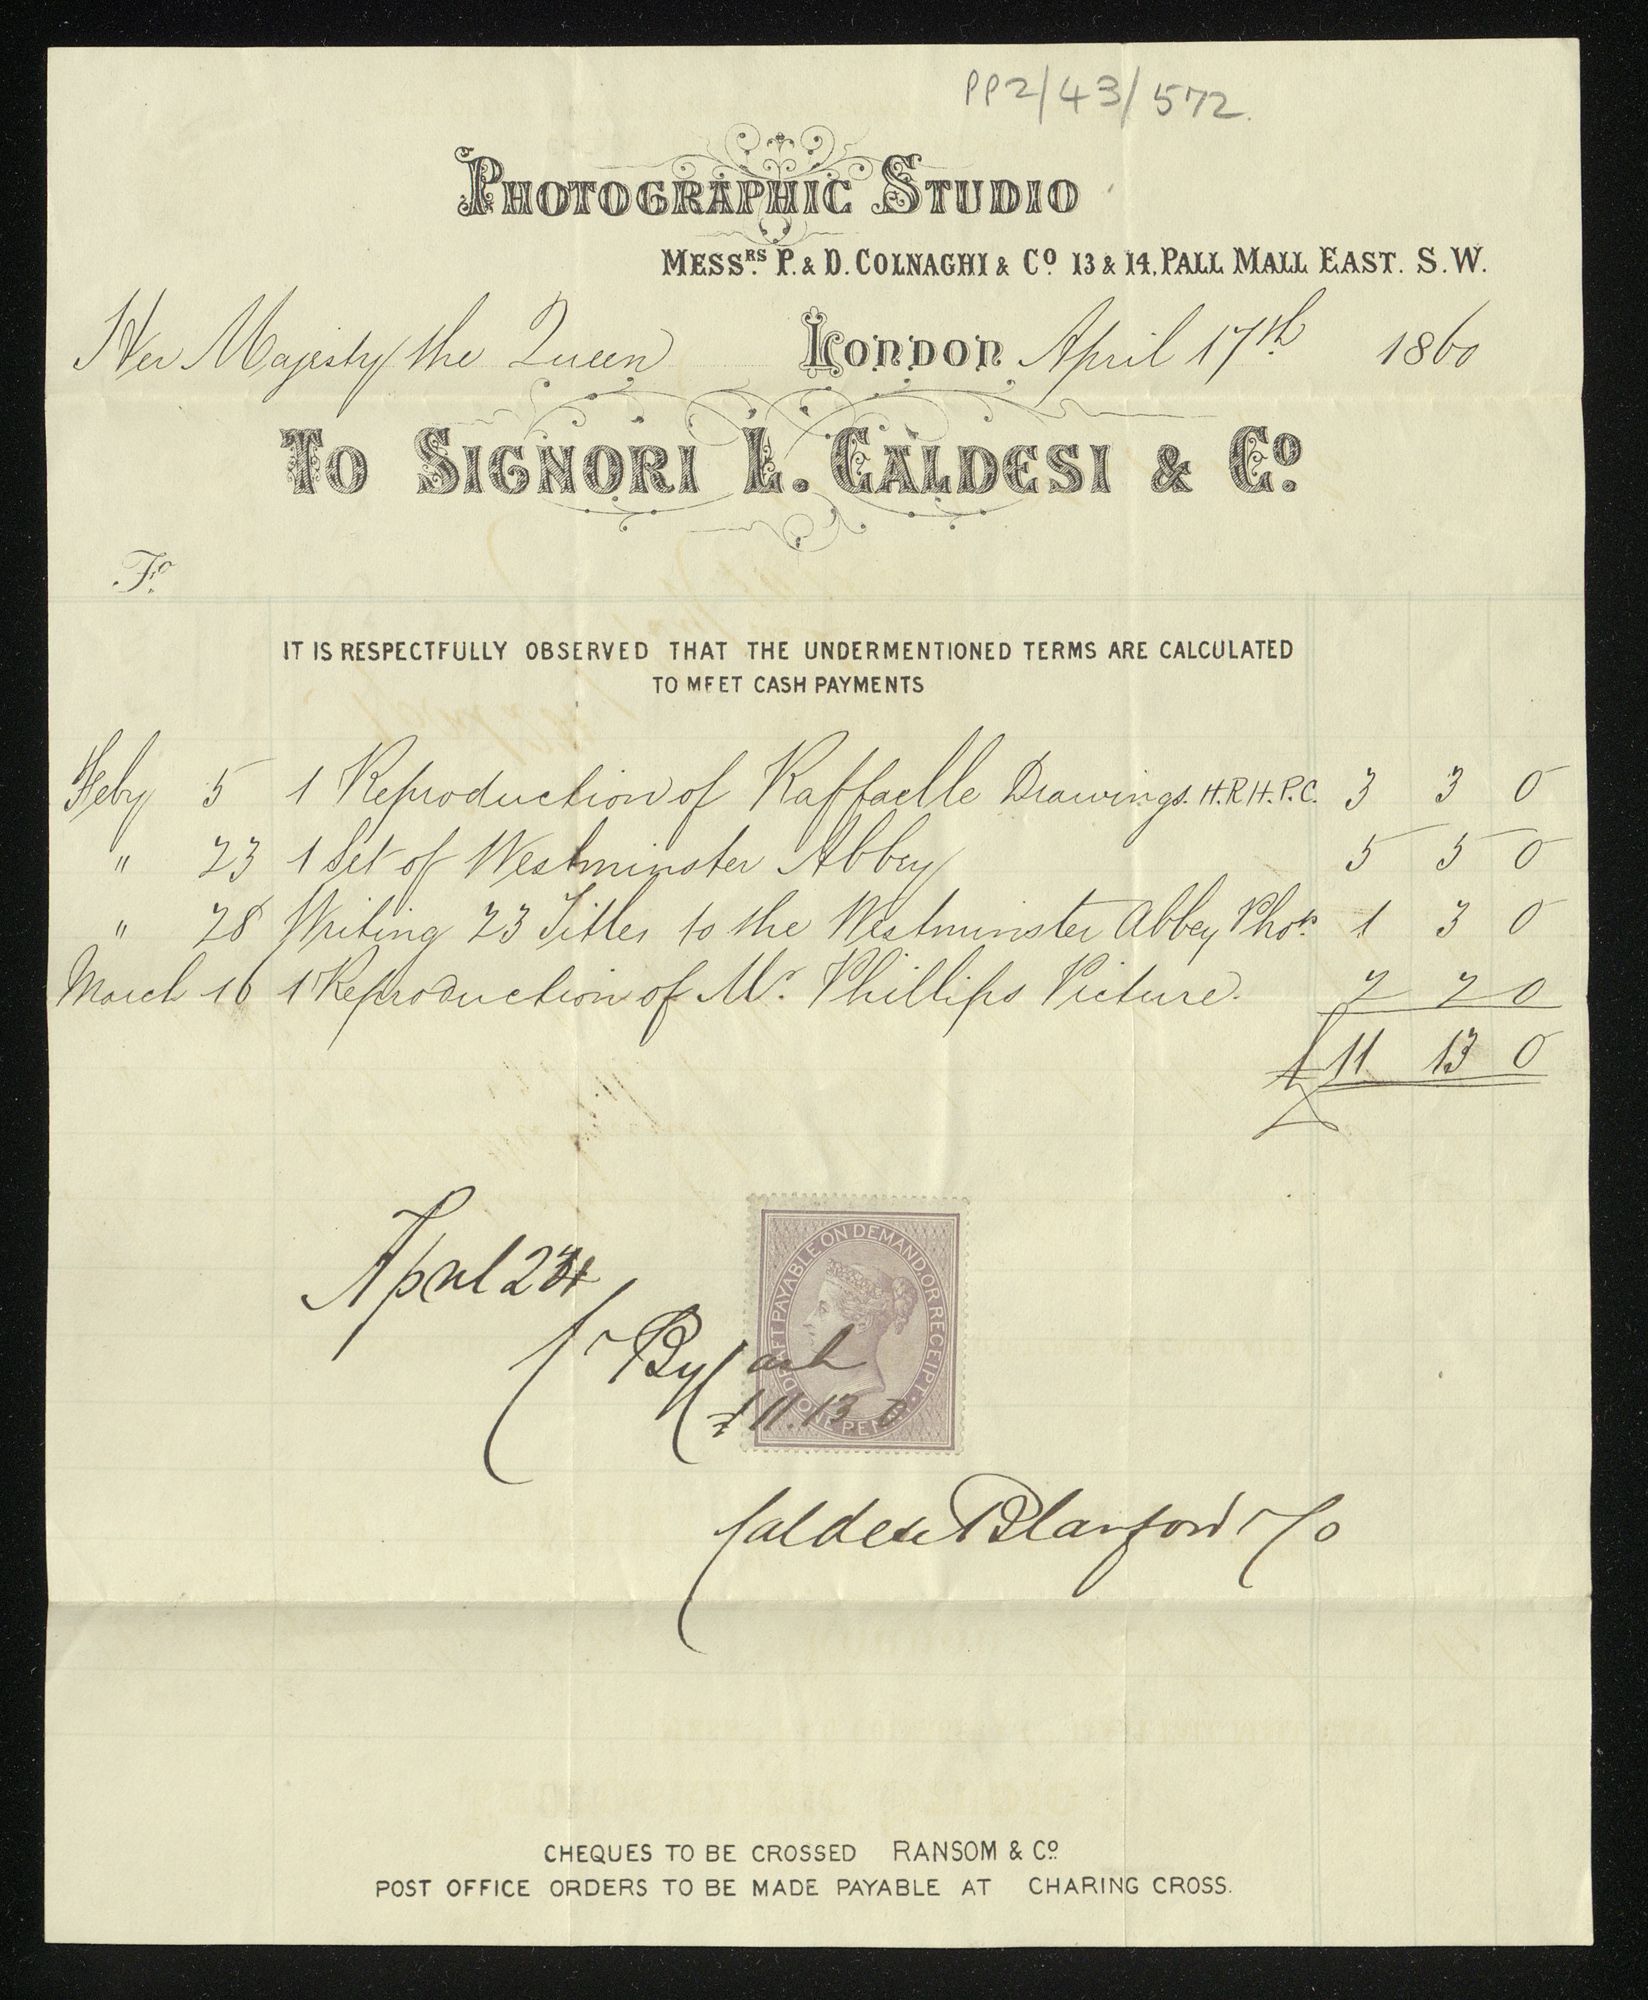 PP2/43/572.
PHOTOGRAPHIC STUDIO
MESSRS. P. & D. COLNAGHI & Co 13 & 14, PALL MALL EAST. S.W.
Her Majesty the Queen LONDON April 17th 1860
TO SIGNORI L. CALDESI & Co.
Fo.
IT IS RESPECTFULLY OBSERVED THAT THE UNDERMENTIONED TERMS ARE CALCULATED
TO MEET CASH PAYMENTS
Feby 5 1 Reproduction of Raffaelle Drawings. H.R.H.P.C. 3 3 0
" 23 1 Set of Westminster Abbey 5 5 0
" 28 Writing 23 Titles to the Westminster Abbey Phos. 1 3 0
March 16 1 Reproduction of Mr. Phillips Picture. 2 2 0
£ 11 13 0
April 23
DRAFT PAYABLE ON DEMAND, OR RECEIPT.
ONE PENNY
By Cash
£11.13 0
Caldesi Blanford & Co
CHEQUES TO BE CROSSED RANSOM & Co.
POST OFFICE ORDERS TO BE MADE PAYABLE AT CHARING CROSS.